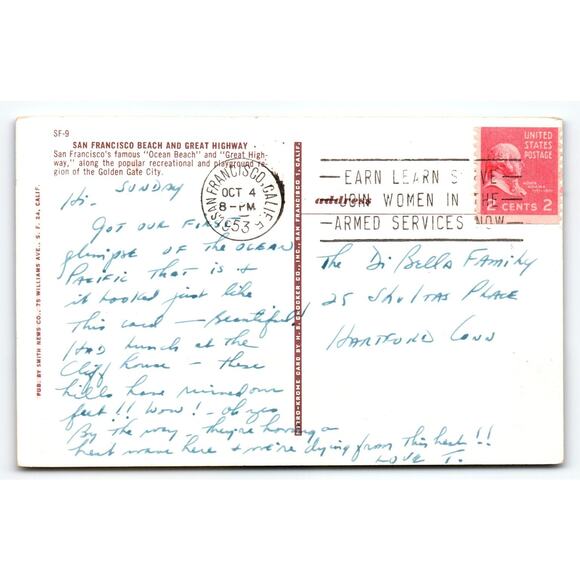 SF-9
SAN FRANCISCO BEACH AND GREAT HIGHWAY
San Francisco's famous "Ocean Beach" and "Great High-
way," along the popular recreational and playground re-
gion of the Golden Gate City.
PUB. BY SMITH NEWS CO., 75 WILLIAMS AVE., S. F. 24, CALIF.
MIRRO-KROME CARD BY H. S. CROCKER CO., INC., SAN FRANCISCO 1, CALIF.
SAN FRANCISCO, CALIF.
OCT 4
8-PM
1953
EARN LEARN SERVE
JOIN WOMEN IN THE
ARMED SERVICES NOW
address
UNITED
STATES
POSTAGE
JOHN
ADAMS
2 CENTS 2
Sunday
Hi-
Got our first
glimpse of the ocean
Pacific that is &
it looked just like
this card - Beautiful!
Had lunch at the
Cliff house - these
hills have ruined our
feet!! Wow! - oh yes
By the way - they're having a
heat wave here & we're dying from this heat!!
Love T.
The Di Bella Family
25 Shultas Place
Hartford Conn